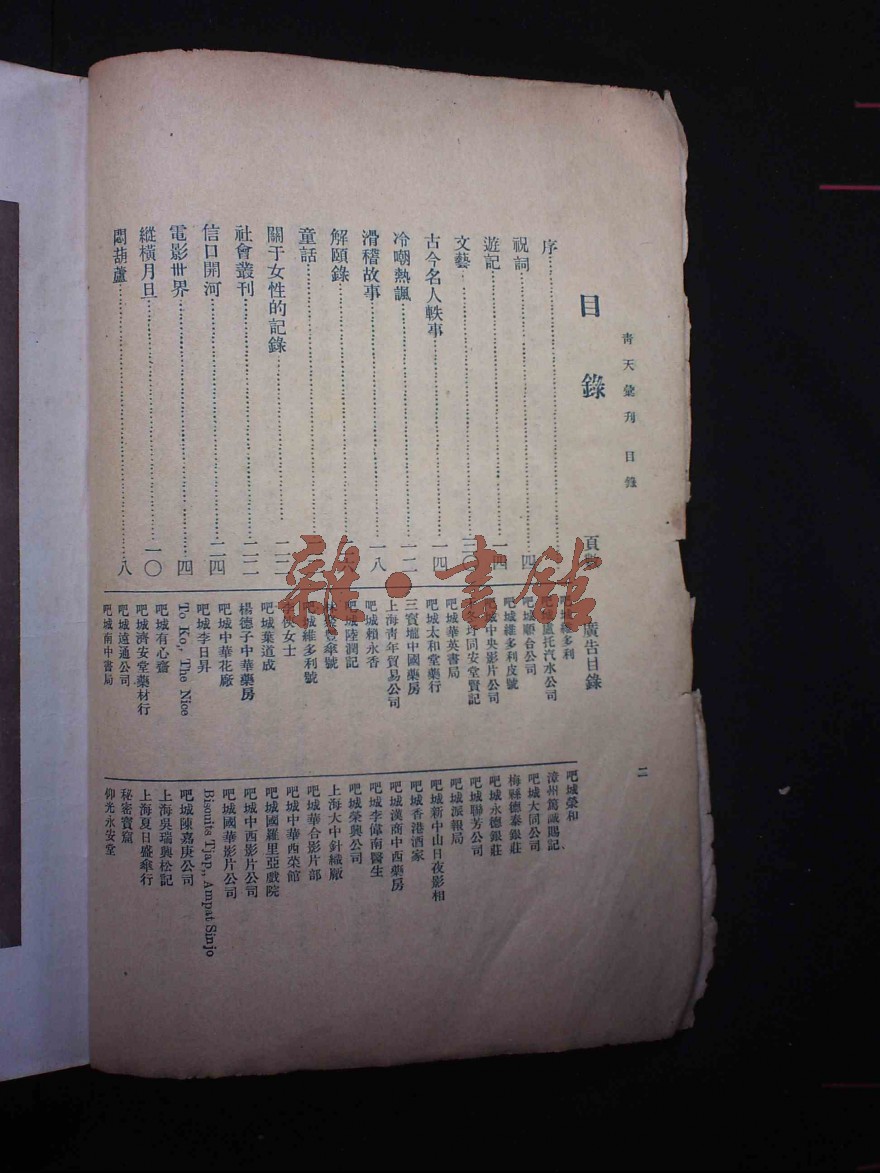 青天彙刊 目錄
二
目錄
頁數
序
祝詞 四
遊記 一四
文藝 三〇
古今名人軼事 一四
冷嘲熱諷 二二
滑稽故事 一八
解頤錄
童話
關于女性的記錄 二二
社會叢刊 二二
信口開河 二四
電影世界 四
縱橫月旦 一〇
悶葫蘆 八
廣告目錄
吧城維多利
吧城盧托汽水公司
吧城順合公司
吧城維多利皮號
吧城中央影片公司
同安堂賢記
吧城華英書局
吧城太和堂藥行
三寶壠中國藥房
上海青年貿易公司
吧城賴永香
吧城陸潤記
傘號
吧城維多利號
李俠女士
吧城葉道成
楊德子中華藥房
吧城中華花廠
吧城李日昇
To Ko,, The Nice
吧城有心齋
吧城濟安堂藥材行
吧城遠通公司
吧城南中書局
吧城榮和
漳州篤誠賜記
吧城大同公司
梅縣德泰銀莊
吧城永德銀莊
吧城聯芳公司
吧城派報局
吧城新中山日夜影相
吧城香港酒家
吧城漢商中西藥房
吧城李偉南醫生
吧城榮興公司
上海大中針織廠
吧城華合影片部
吧城中華西菜館
吧城國羅里亞戲院
吧城中西影片公司
吧城國華影片公司
Bisouits Tjap,, Ampat Sinjo
吧城陳嘉庚公司
上海吳瑞興松記
上海夏日盛傘行
秘密寶窟
仰光永安堂
雜·書館